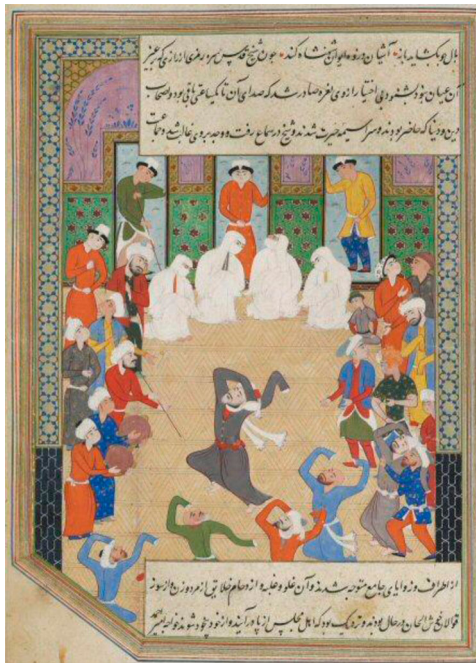 بال چو بگشاید آشیان در ذروه ایوان شهنشاه کند چون شیخ قدس سره رمزی از رازی که
آن عیان بود بشنود بی اختیار از وی نعره صادر شد که صدای آن تا یک ساعت باقی بود و اصحاب
دین و دنیا که حاضر بودند و سراسیمه حیرت شدند و شیخ در سماع رفت و وجد بر وی غالب شد و جماعت
از اطراف و زوایای جامع متوجه شدند و آن غلو و غلبه و ازدحام خلایق از مرد و زن و از سوز
قوالان خوش الحان در حال بودند و نزدیک بود که اهل مجلس از پا در آیند و از خود بیخود شوند خواجه